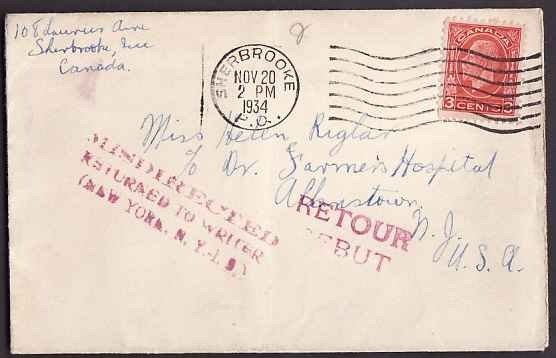 108 Laurier Ave
Sherbrooke, Que
Canada.
SHERBROOKE
NOV 20
2 PM
1934
P.Q.
CANADA
3 CENTS 3
Miss Helen Riglar
c/o Dr. Farmer's Hospital
Allentown,
N. J.
U. S. A.
MISDIRECTED
RETURNED TO WRITER
(NEW YORK, N. Y.
RETOUR
REBUT